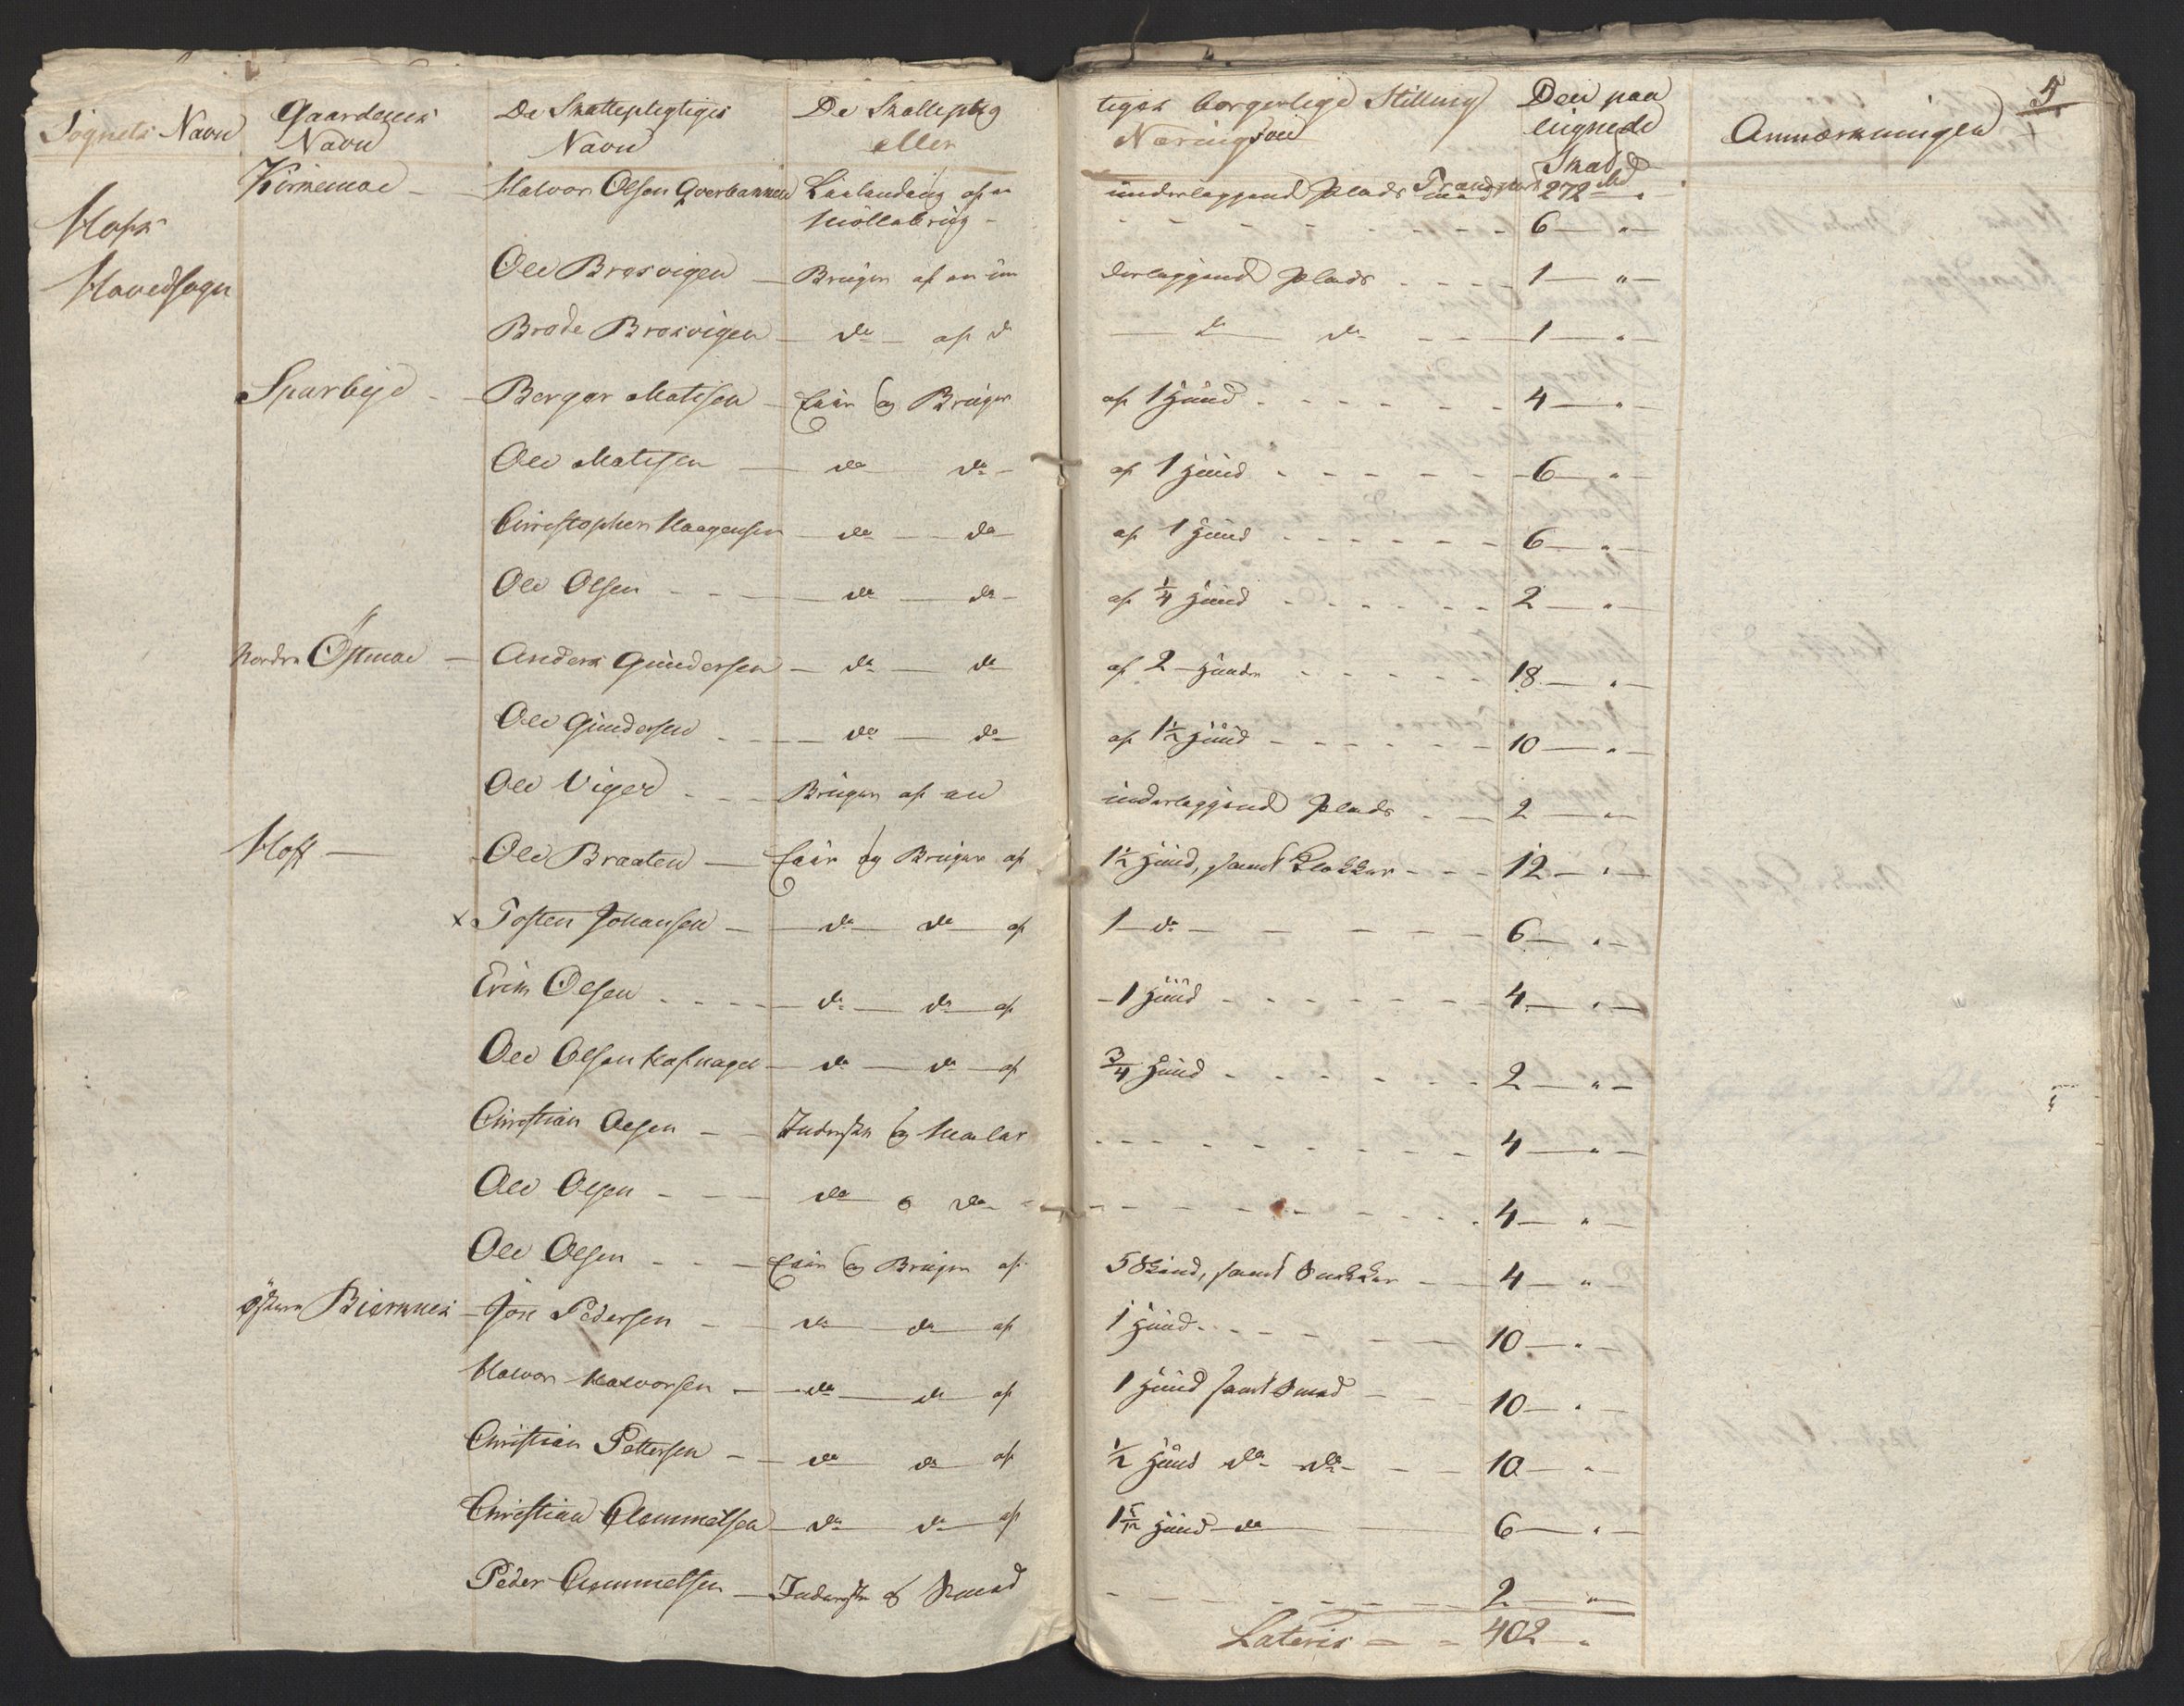 Sognets Navn | Gaardenes Navn | De Skattepligtiges Navn | De Skattepligtiges borgerlige Stilling eller Næringsvei | Den paalignede Skat | Anmærkninger | 5
Transport 272
Hofs Hovedsogn
Kirkemoe — Halvor Olsen underliggende Plads med Møllebrug - 6 — " —
Ole Brøsvigen — Bruger af en underliggende Plads - - - 1 — " —
Brede Brøsvigen — do — af do — do do - - 1 — " —
Skarbye - Berger Matisen — Eier og Bruger af 1 Huud - - - 4 — " —
Ole Matisen — do do - af 1 Huud - - - 6 — " —
Christopher Haagensen — do — do af 1 Huud - - - 6 — " —
Ole Olsen - - — do — do - af 1/4 Huud - - - 2 — " —
Nordre Østmoe — Anders Gundersen — do — do af 2 Huder - - - 18 — " —
Ole Gundersen - — do — do af 1 1/2 Huud - - - 10 — " —
Ole Viger - - Bruger af en underliggende Plads - - 2 — " —
Hoff — Ole Braaten — Eier og Bruger af 1 1/2 Huud, samt Klokker - - - 12 — " —
x Tosten Johansen — do do af 1 do - - - 6 — " —
Erik Olsen - - - do — do af 1 Huud - - - 4 — " —
Ole Olsen — do — do af 3/4 Huud - - - 2 — " —
Christian Olsen — Inderste og Maler - - - 4 — " —
Ole Olsen - — do o do - - - 4 — " —
Ole Olsen - - Eier og Bruger af 5 Skind, samt Snekker — 4 — " —
Østere Biørnnes — Jon Pedersen — do do af 1 Huud - - - 10 — " —
Halvor Halvorsen — do do af 1 Huud samt Smed — 10 — " —
Christian Pettersen — do do af 1/2 Huud do do — 10 — " —
Christian Clemmetsen — do do af 1 5/12 Huud do — 6 — " —
Peder Clemmetsen — Inderste & Smed - - - 2 — " —
Lateris - - 402 "